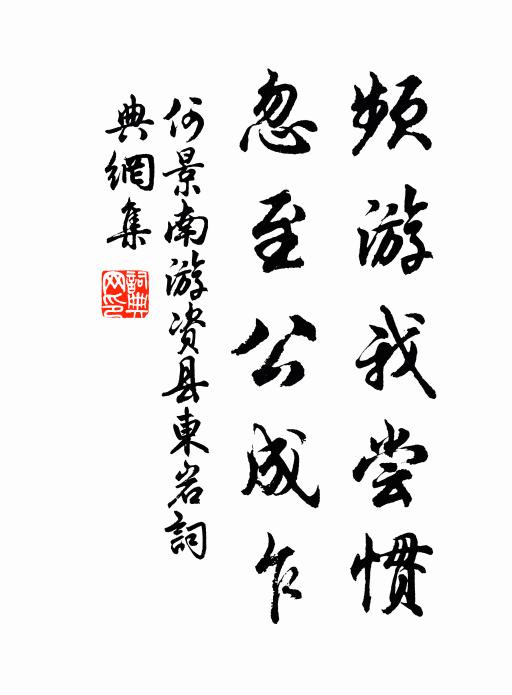 频游我尝惯
忽至公成乍
何景南游资县東岩詞
典網集
詞典
网印